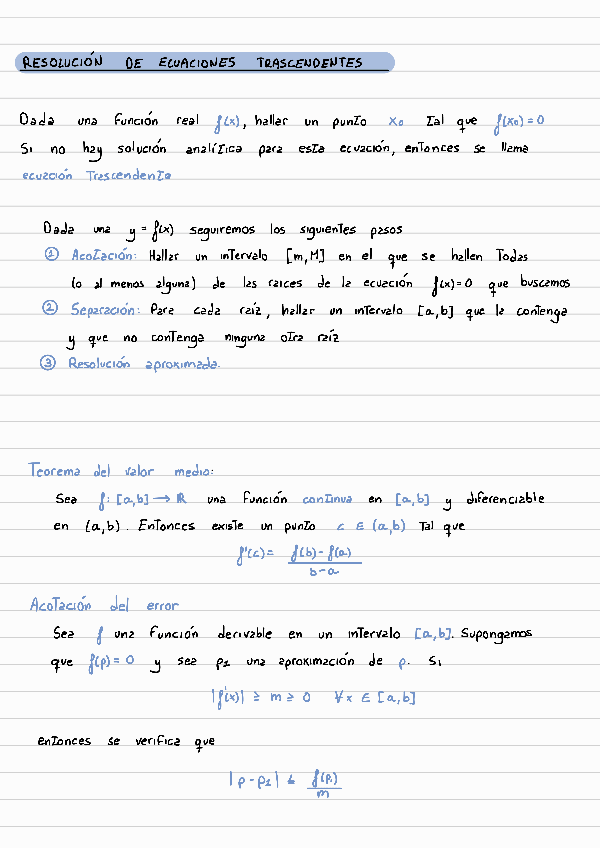 RESOLUCIÓN DE ECUACIONES TRASCENDENTES
Dada una función real f(x), hallar un punto x₀ tal que f(x₀) = 0
Si no hay solución analítica para esta ecuación, entonces se llama
ecuación trascendente
Dada una y = f(x) seguiremos los siguientes pasos
① Acotación: Hallar un intervalo [m,M] en el que se hallen todas
(o al menos alguna) de las raíces de la ecuación f(x)=0 que buscamos
② Separación: Para cada raíz, hallar un intervalo [a,b] que la contenga
y que no contenga ninguna otra raíz
③ Resolución aproximada.
Teorema del valor medio:
Sea f: [a,b] → ℝ una función continua en [a,b] y diferenciable
en (a,b). Entonces existe un punto c ∈ (a,b) tal que
f'(c) = f(b)-f(a) / b-a
Acotación del error
Sea f una función derivable en un intervalo [a,b]. Supongamos
que f(p) = 0 y sea p₁ una aproximación de p. Si
|f'(x)| ≥ m ≥ 0 ∀x ∈ [a,b]
entonces se verifica que
|p-p₁| ≤ f(p₁) / m